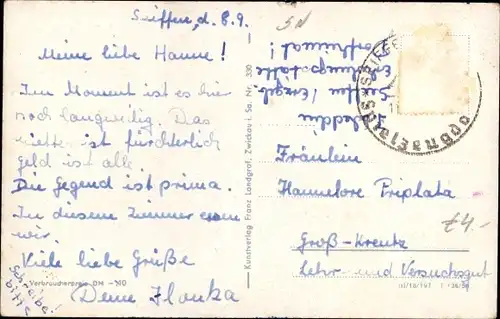 Seiffen, d. 8.9.
Meine liebe Hanne!
Im Moment ist es hier
noch langweilig. Das
Wetter ist fürchterlich
geld ist alle
Die Gegend ist prima.
In diesem Zimmer essen
wir
Viele liebe Grüße
Deine Ilonka
Schreibe!
bitte
Verbraucherpreis DM -,10
Kunstverlag Franz Landgraf, Zwickau i. Sa. Nr. 330
Seiffen / Erzgeb.
Fräulein
Hannelore Priplata
Groß-Kreutz
Lehr- und Versuchsgut